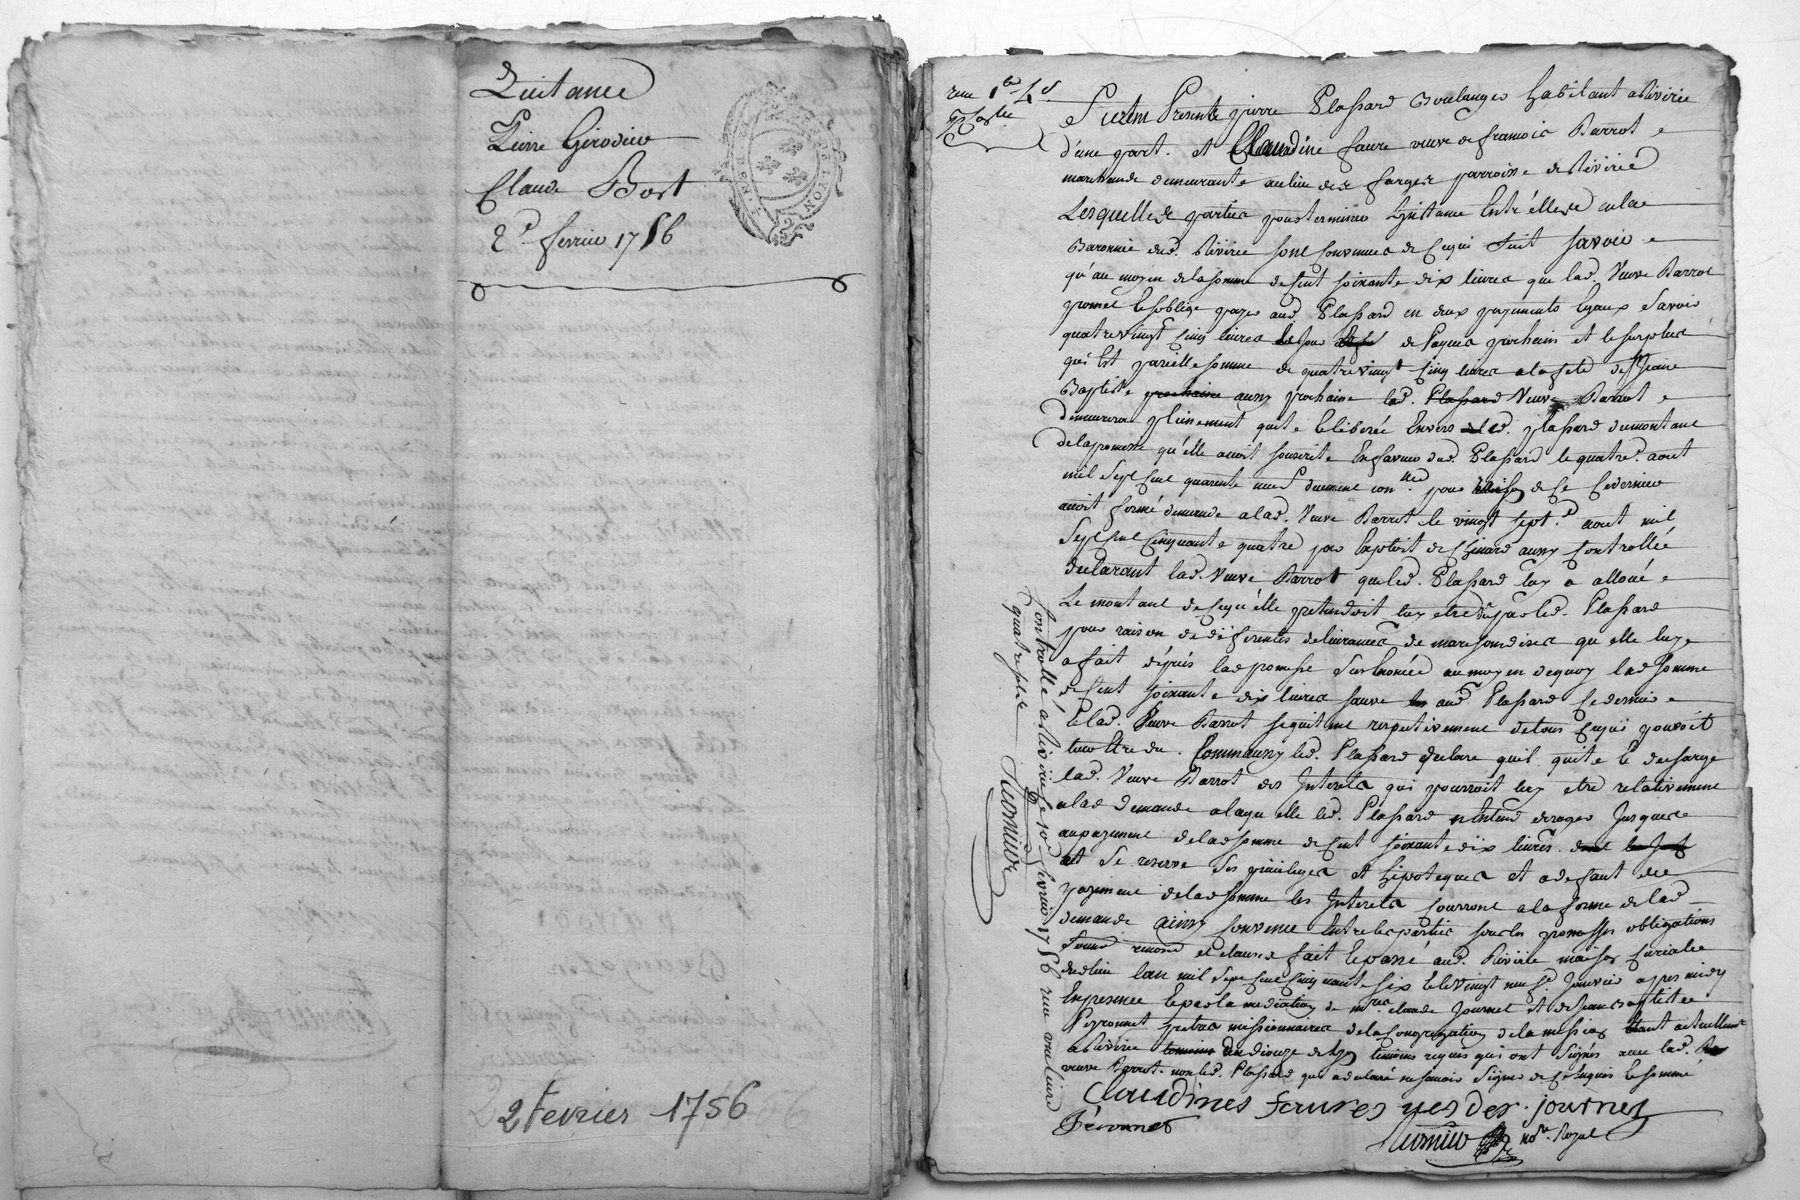 Quittance
Pierre Girodier
Claude Bort
2e. fevrier 1756
GEN. DE LYON
2 Fevrier 1756
Furent Presents pierre Plassard Boulanger habitant a Rivirie
d'une part. et Claudine faure veuve de francois Barrot
marchande demeurante au lieu des farges parroisse de Rivirie
Lesquelles parties pour terminer Linstance Entr'elles en la
Baronnie dud. Rivirie sont Convenues de Ce qui suit savoir
qu'au moyen de la somme de Cent soixante dix livres que lad. Veuve Barrot
promet Et soblige payer aud. Plassard en deux payements Egaux Savoir
quatrevingt Cinq livres de Paques prochain et le surplus
qui Est pareille somme de quatrevingt Cinq livres a la fete de St Jean
Baptiste prochaine aussy prochaine lad. Plassard Veuve Barrot
demeurera pleinement quitte Et liberée Envers led. plassard du montant
de la promesse qu'elle avoit souscrite En faveur dud. Plassard le quatre aout
mil sept Cent quarante neuf duement con.llée pour de Ce Ce dernier
avoit formé demande a lad. Veuve Barrot le vingt sept aout mil
Sept Cent Cinquante quatre par Exploit de aussy Controllée
declarant lad. Veuve Barrot que led. Plassard luy a alloué
Le montant de Ce qu'elle pretendoit luy etre dû par led. Plassard
pour raison de differentes delivrances de marchandises qu'elle luy
a fait depuis lad. promesse Susénoncée au moyen de quoy lad. somme
de Cent soixante dix livres sauve aud. Plassard Ce dernier
Et lad. Veuve Barrot se quittent respectivement de tout Ce qui pouvoit
leur Etre du. Comme aussy led. Plassard declare qu'il quitte Et decharge
lad. Veuve Barrot des Interets qui pourroit luy etre relativement
a lad. demande a laquelle led. Plassard n'Entend deroger Jusques
au payement de lad. somme de Cent soixante dix livres
et se reserve Ses privileges et hipoteques et a defaut de
payement de lad. somme les Interets Courront a la forme de lad.
demande ainsy Convenu Entre les parties sous les promesses obligations
renon. et clauses fait Et passé aud. Rivirie maison Curiale
dud. lieu lan mil sept Cent Cinquante six Et le vingt neuf Janvier apres midy
En presence Et par la mediation de mrs. claude Journet et de Jean Baptiste
Peyronnet pretres missionnaires de la Congregation de la mission Etant actuellement
a Rivirie temoins du dioceze de lyon temoins requis qui ont Signés avec lad.
veuve Barrot. non led. Plassard qui a declaré ne savoir Signer de Ce Enquis Et sommé
Claudines faures journet
Péronnet
not.re Royal
Controllé a Rivirie le 10e. fevrier 1756 reçu une livre
quatre sols